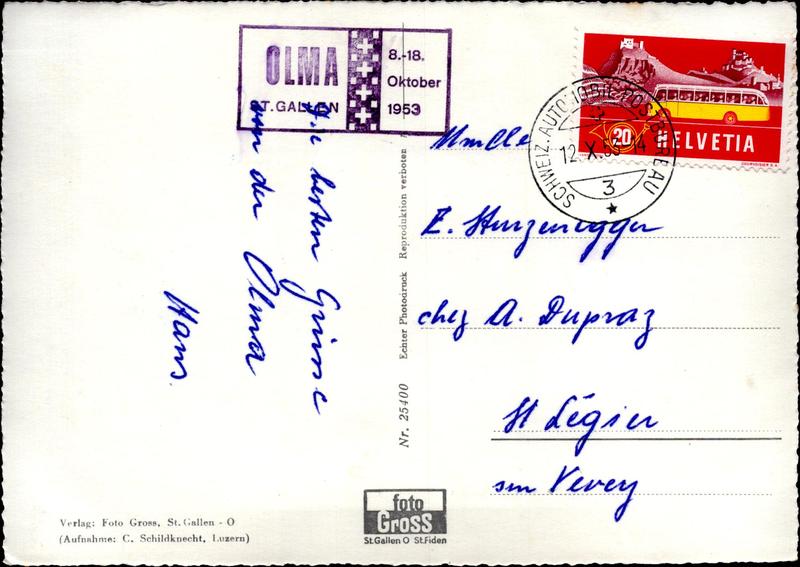 OLMA
ST. GALLEN
8.-18.
Oktober
1953
HELVETIA
20
COURVOISIER S.A.
SCHWEIZ. AUTOMOBIL-POSTBUREAU
12.X.53-14
3
Die besten Grüsse
von der Olma
Hans.
Mmlle
E. Herzenegger
chez A. Dupraz
St Légier
sur Vevey
Nr. 25400 Echter Photodruck Reproduktion verboten
Verlag: Foto Gross, St. Gallen - O
(Aufnahme: C. Schildknecht, Luzern)
foto
Gross
St.Gallen O St.Fiden